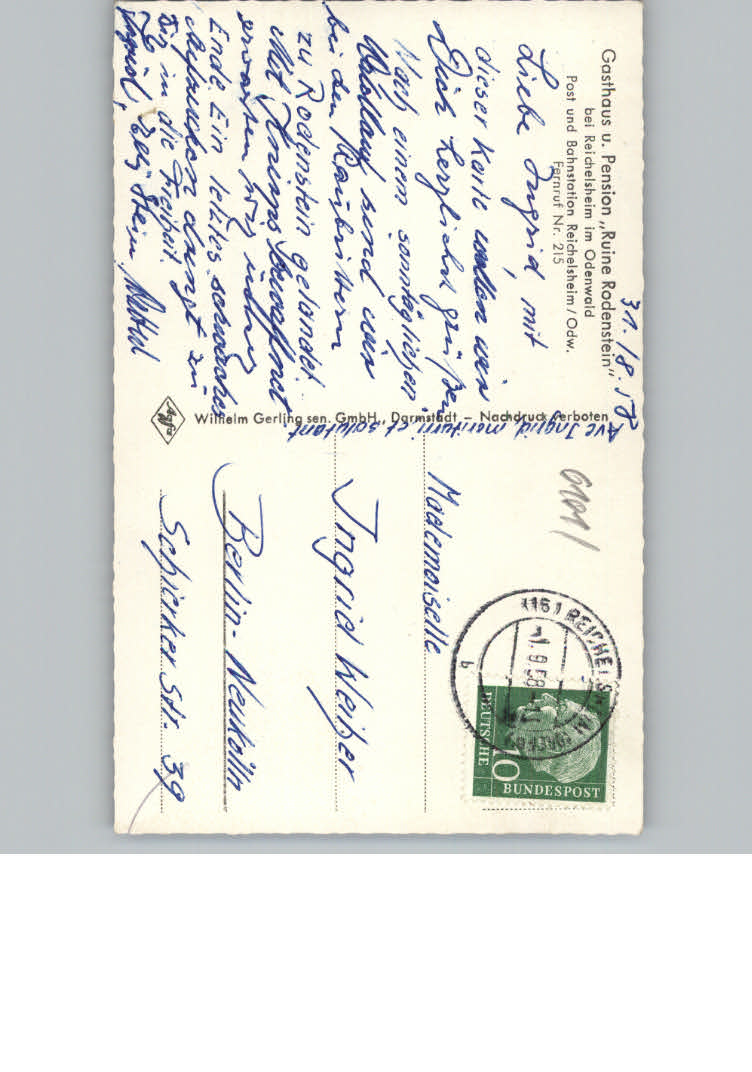 Gasthaus u. Pension „Ruine Rodenstein"
bei Reichelsheim im Odenwald
Post und Bahnstation Reichelsheim / Odw.
Fernruf Nr. 215
31./8.58
Liebe Ingrid, mit
dieser Karte wollen wir
Dich herzlichst grüßen.
Nach einem sonntäglichen
sind wir
bei den Raubrittern
zu Rodenstein gelandet.
Mit Knirps bewaffnet
erwarten wir
Ende. Ein letztes schwaches
zu
in die Freiheit.
Ave Ingrid morituri et salutant
Wilhelm Gerling sen. GmbH., Darmstadt – Nachdruck verboten
Agfa
6101
Mademoiselle
Ingrid Weißer
Berlin-Neukölln
Schierker Str. 39
(16) REICHELSHEIM
-1.9.58
b
DEUTSCHE
10
BUNDESPOST